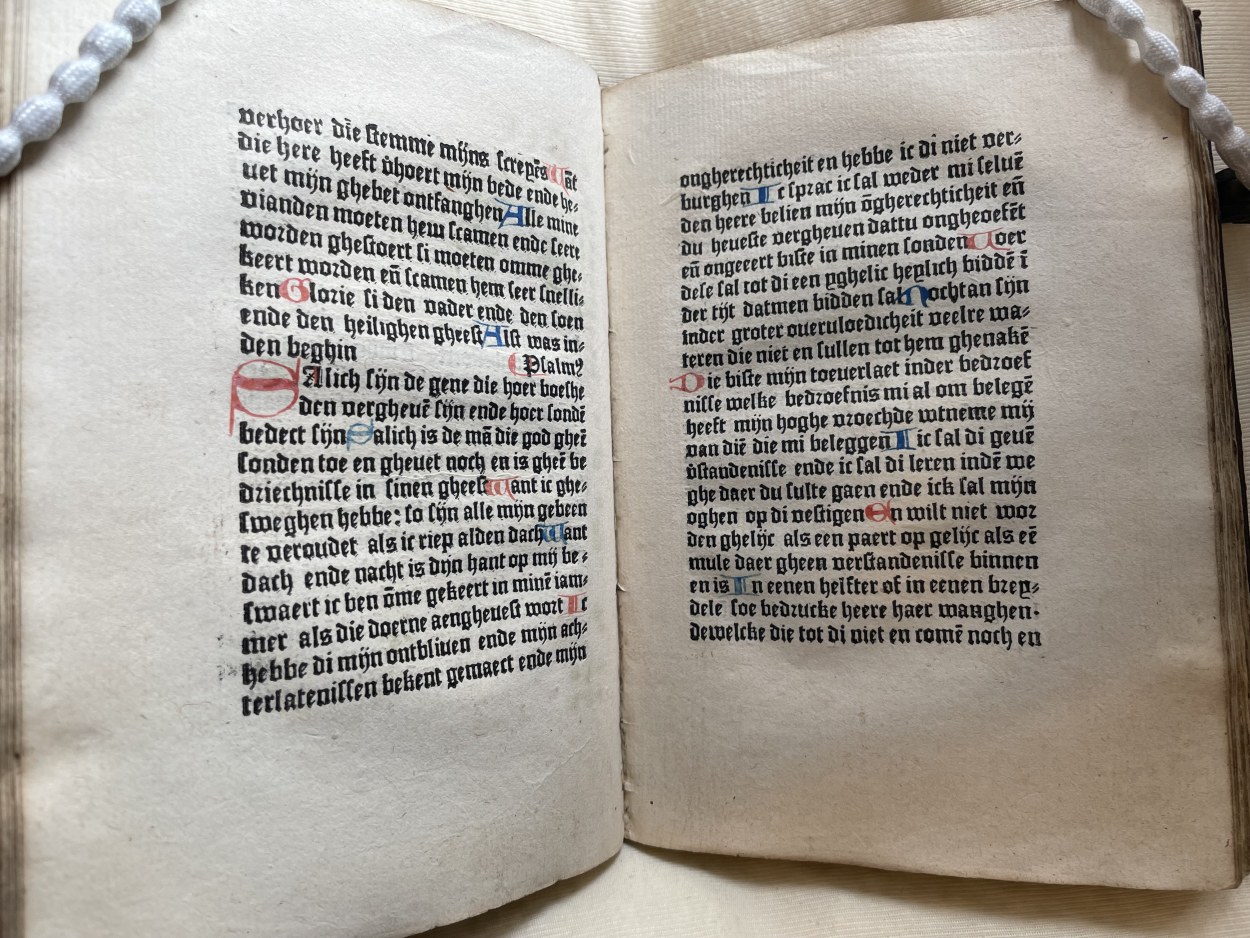 verhoer die stemme mijns screyēs Wāt
die here heeft v̄hoert mijn bede ende he⸗
uet mijn ghebet ontfanghen Alle mine
vianden moeten hem scamen ende seere
worden ghestoert si moeten omme ghe⸗
keert worden eñ scamen hem seer snelli⸗
ken Glorie si den vader ende den soen
ende den heilighen gheest Alst was in⸗
den beghin
Psalmꝰ
SAlich sijn de gene die hoer boeshe
den vergheuē sijn ende hoer sondē
bedect sijn Salich is de mā die god gheē
sonden toe en gheuet noch en is gheē be
driechnisse in sinen gheest Want ic ghe⸗
sweghen hebbe: so sijn alle mijn gebeen
te veroudet als ic riep alden dach Want
dach ende nacht is dijn hant op mij be⸗
swaert ic ben ōme gekeert in minē iam⸗
mer als die doerne aengheuest wort Ic
hebbe di mijn ontbliuen ende mijn ach⸗
terlatenissen bekent gemaect ende mijn
ongherechticheit en hebbe ic di niet ver⸗
burghen Ic sprac ic sal weder mi seluē
den heere belien mijn ōgherechticheit eñ
du heueste vergheuen dattu ongheoefēt
eñ ongeeert biste in minen sonden Voer
dese sal tot di een yghelic heylich biddē ī
der tijt datmen bidden sal Nochtan sijn
inder groter oueruloedicheit veelre wa⸗
teren die niet en sullen tot hem ghenakē
Die biste mijn toeuerlaet inder bedroef
nisse welke bedroefnis mi al om belegē
heeft mijn hoghe vroechde wtneme mij
van diē die mi beleggen Ic ic sal di geuē
v̄standenisse ende ic sal di leren indē we
ghe daer du sulte gaen ende ick sal mijn
oghen op di vestigen En wilt niet wor
den ghelijc als een paert op gelijc als eē
mule daer gheen verstandenisse binnen
en is In eenen heifter of in eenen brey⸗
dele soe bedrucke heere haer wanghen·
dewelcke die tot di niet en comē noch en